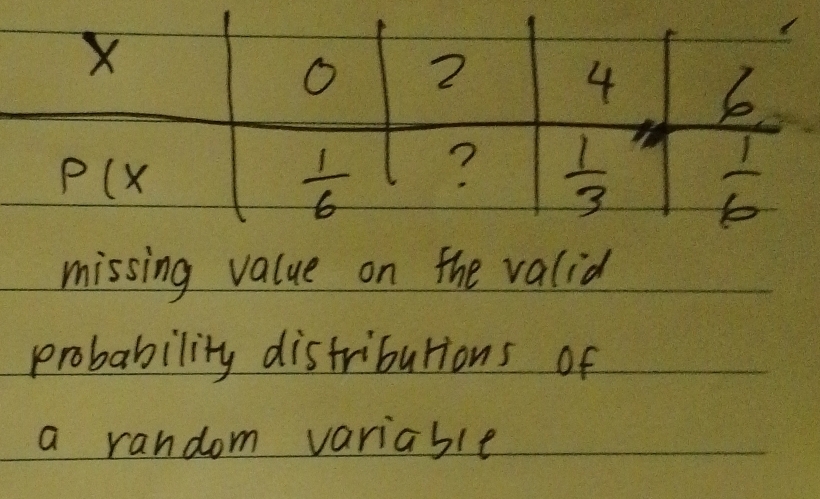 X 0 2 4 6
P(X 1/6 ? 1/3 1/6
missing value on the valid
probability distributions of
a random variable